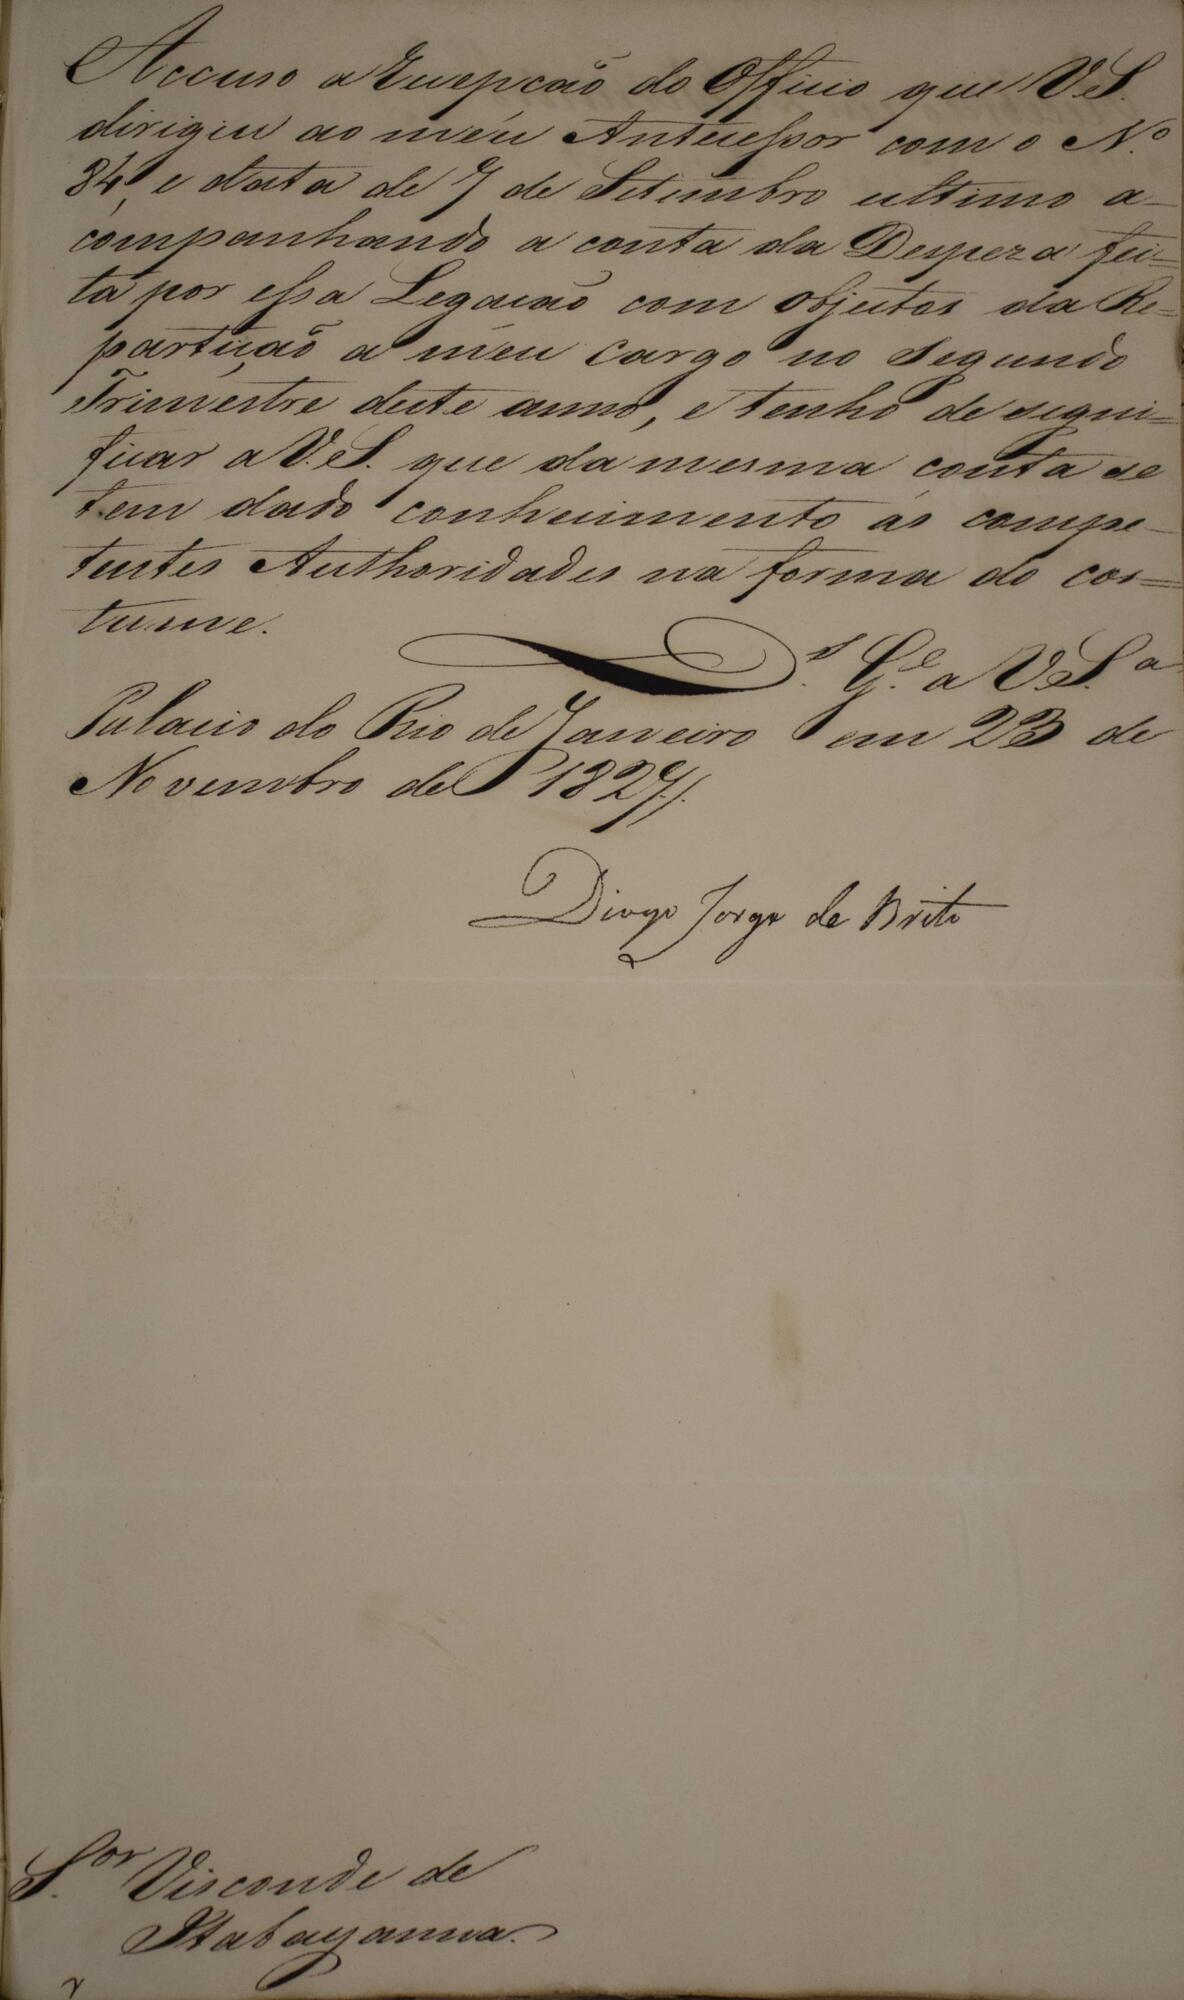 Accuso a Recepcão do Officio que V. S.
dirigiu ao meu Antecessor com o N.º
84, e data de 7 de Setembro ultimo a-
companhando a conta da Despeza fei=
ta por essa Legacão com objectos da Re=
partição a meu cargo no Segundo
Trimestre deste anno, e tenho de signi=
ficar a V. S. que da mesma conta se
tem dado conhecimento ás compe-
tentes Authoridades na forma do cos=
tume.
D.s G.e a V. S.a
Palacio do Rio de Janeiro em 23 de
Novembro de 1827 //.
Diogo Jorge de Brito
S.or Visconde de
Itabayanna.